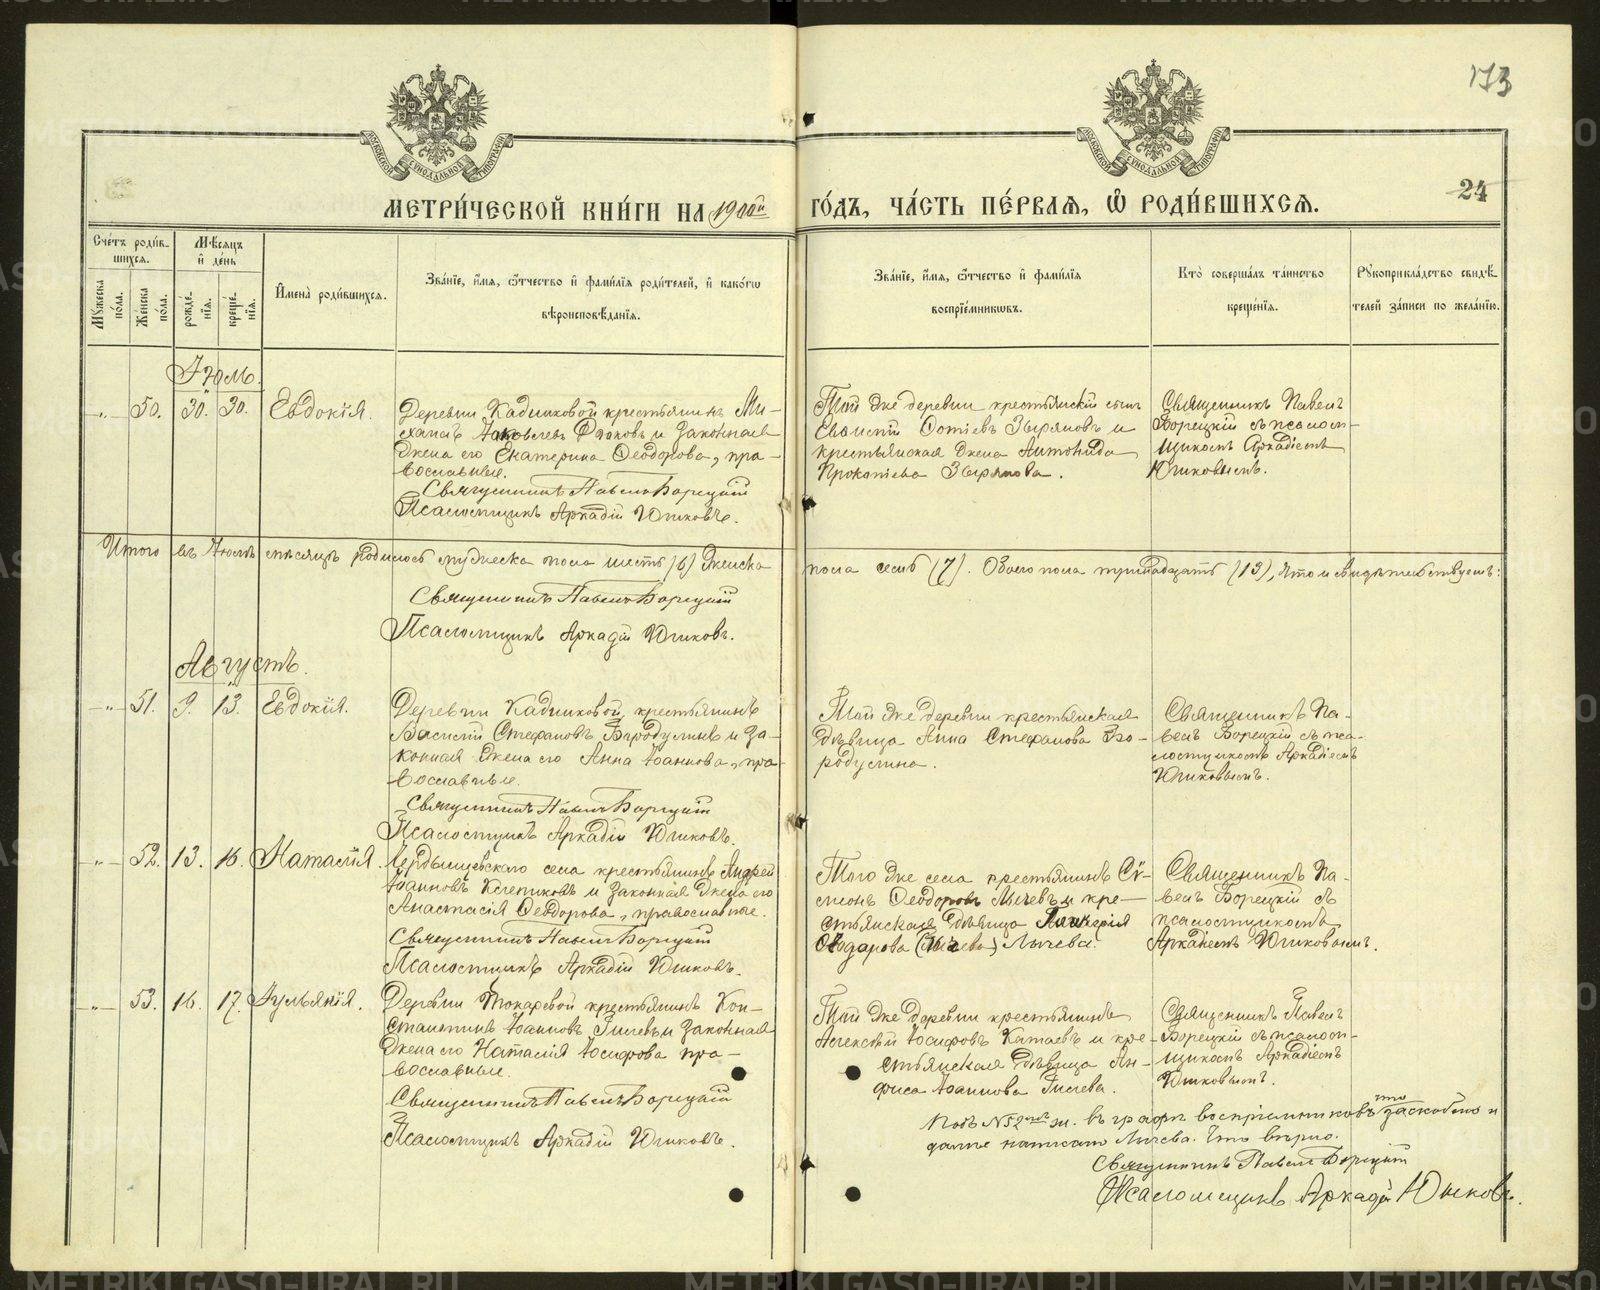 173
24
МОСКОВСКОЙ СѴНОДАЛЬНОЙ ТИПОГРАФІИ
МОСКОВСКОЙ СѴНОДАЛЬНОЙ ТИПОГРАФІИ
МЕТРИ́ЧЕСКОЙ КНИ́ГИ НА 1900й ГО́ДЪ, ЧА́СТЬ ПЕ́РВАЯ, Ѽ РОДИ́ВШИХСЯ.
Сче́тъ роди́в-
шихся.
Мꙋ́жеска по́ла.
Же́нска по́ла.
Мѣ́сяцъ
и҆ де́нь
рожде́-
нїя.
креще́-
нїя.
И҆мена̀ роди́вшихся.
Зва́нїе, и҆́мя, ѻ҆́тчество и҆ фами́лїя роди́телей, и҆ како́гѡ
вѣроисповѣ́данїя.
Зва́нїе, и҆́мя, ѻ҆́тчество и҆ фами́лїя
воспрїе́мникѡвъ.
Кто̀ соверша́лъ та́инство
креще́нїя.
Рꙋкоприкла́дство свидѣ́-
телей за́писи по жела́нїю.
Іюль.
-„- 50. 30. 30. Евдокія.
Деревни Кадниковой крестьянинъ Ми-
хаилъ Іаковлевъ и законная
жена его Екатерина Ѳеодорова, пра-
вославные.
Священникъ Павелъ Борецкій
Псаломщикъ Аркадій Юшковъ.
Той же деревни крестьянскій сынъ
Зыряновъ и
крестьянская жена Антонида
Прокопьева Зырянова.
Священникъ Павелъ
Борецкій съ псалом-
щикомъ Аркадіемъ
Юшковымъ.
Итого въ Іюлѣ мѣсяцѣ родилось мужеска пола шесть (6) женска пола семь (7). Обоего пола тринадцать (13), что и свидѣтельствуемъ:
Священникъ Павелъ Борецкій
Псаломщикъ Аркадій Юшковъ.
Августъ.
-„- 51. 9. 13. Евдокія.
Деревни Кадниковой крестьянинъ
Василій Стефановъ Бородулинъ и за-
конная жена его Анна Іоаннова, пра-
вославные.
Священникъ Павелъ Борецкій
Псаломщикъ Аркадій Юшковъ.
Той же деревни крестьянская
дѣвица Анна Стефанова Бо-
родулина.
Священникъ Па-
велъ Борецкій съ пса-
ломщикомъ Аркадіемъ
Юшковымъ.
-„- 52. 13. 16. Наталія.
села крестьянинъ Андрей
Іоанновъ и законная жена его
Анастасія Ѳеодорова, православные.
Священникъ Павелъ Борецкій
Псаломщикъ Аркадій Юшковъ.
Того же села крестьянинъ Сѵ-
меонъ Ѳеодоровъ Лычевъ и кре-
стьянская дѣвица
Лычева.
Священникъ Па-
велъ Борецкій съ
псаломщикомъ
Аркадіемъ Юшковымъ.
-„- 53. 16. 17. Іуліанія.
Деревни Токаревой крестьянинъ Кон-
стантинъ Іоанновъ и законная
жена его Наталія Іосифова пра-
вославные.
Священникъ Павелъ Борецкій
Псаломщикъ Аркадій Юшковъ.
Той же деревни крестьянинъ
Алексѣй Іосифовъ Катаевъ и кре-
стьянская дѣвица Ан-
фиса Іоаннова
Священникъ Павелъ
Борецкій съ псалом-
щикомъ Аркадіемъ
Юшковымъ.
Подъ №52 ж. въ графѣ воспріемниковъ что заскоблено и
далѣе написано Лычева. Что вѣрно.
Священникъ Павелъ Борецкій
Псаломщикъ Аркадій Юшковъ.
METRIKI.GASO-URAL.RU